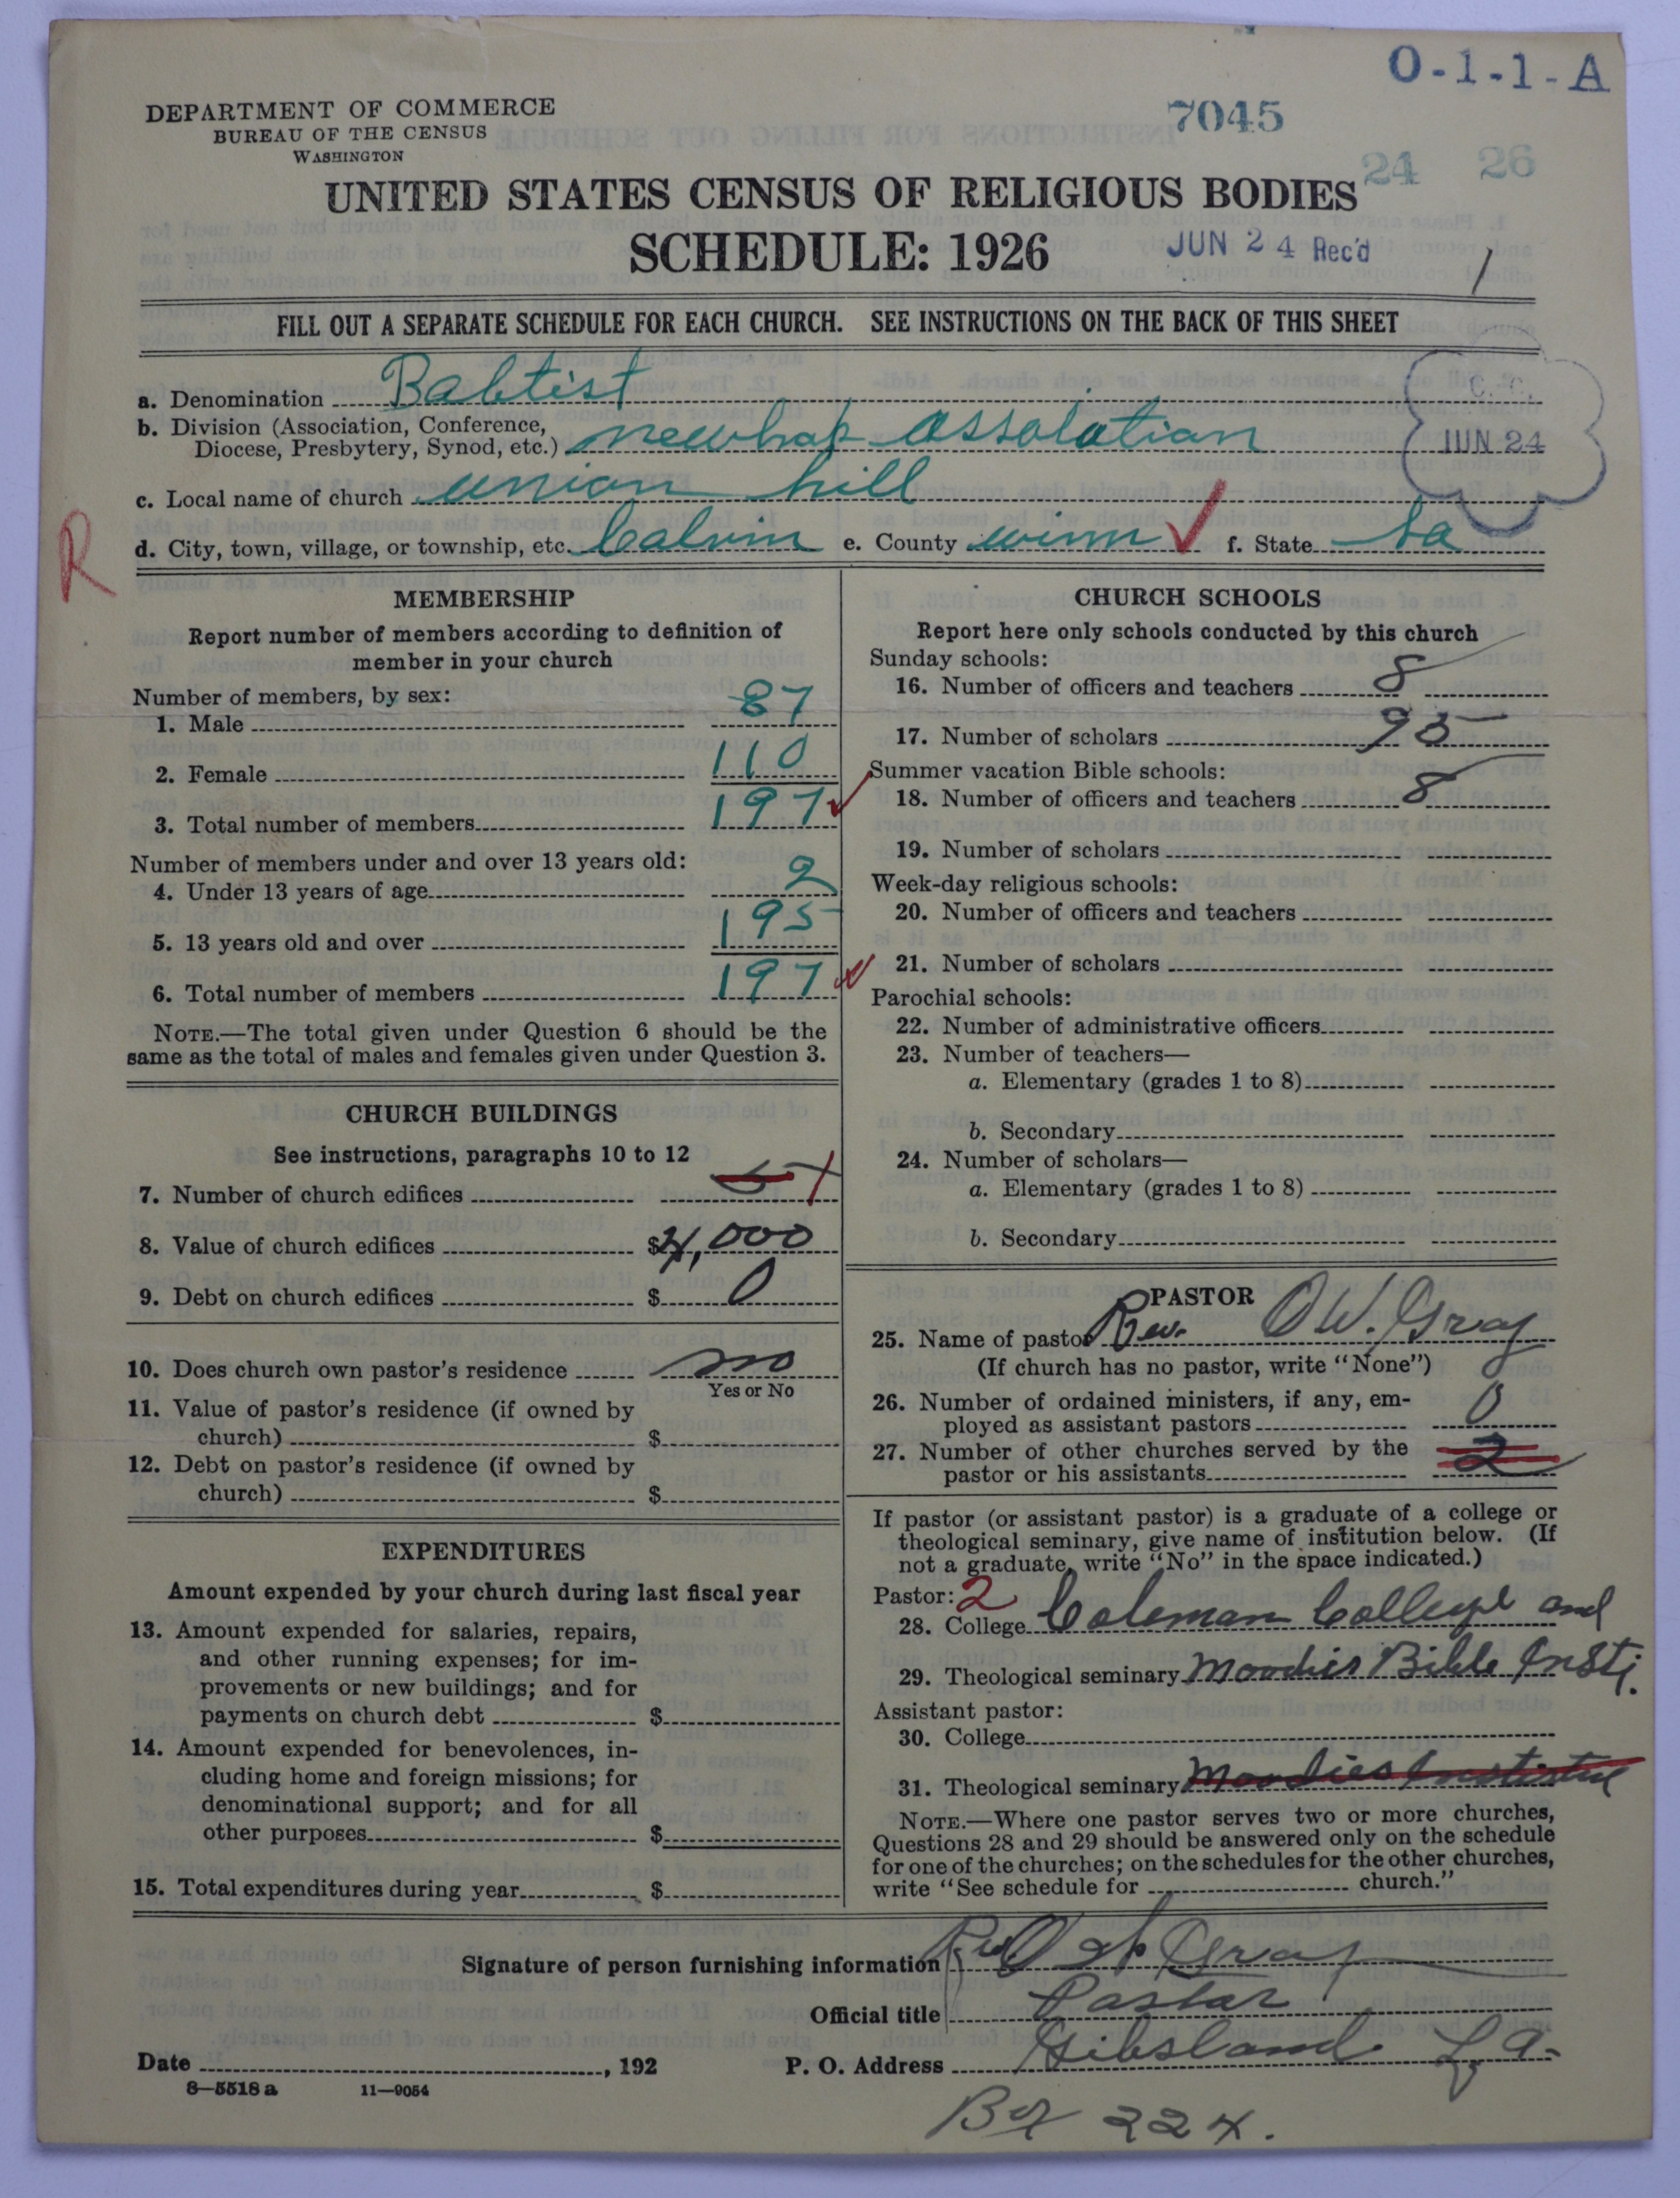 O-1-1-A
DEPARTMENT OF COMMERCE
BUREAU OF THE CENSUS
WASHINGTON
7045
24 26
UNITED STATES CENSUS OF RELIGIOUS BODIES
SCHEDULE: 1926
JUN 24 Rec'd
1
FILL OUT A SEPARATE SCHEDULE FOR EACH CHURCH. SEE INSTRUCTIONS ON THE BACK OF THIS SHEET
a. Denomination Babtist
b. Division (Association, Conference,
Diocese, Presbytery, Synod, etc.) newhop assolation
C. C.
JUN 24
c. Local name of church union hill
d. City, town, village, or township, etc. Calvin e. County winn f. State La
R
MEMBERSHIP
Report number of members according to definition of
member in your church
Number of members, by sex:
1. Male 87
2. Female 110
3. Total number of members 197
Number of members under and over 13 years old:
4. Under 13 years of age 2
5. 13 years old and over 195
6. Total number of members 197
NOTE.—The total given under Question 6 should be the
same as the total of males and females given under Question 3.
CHURCH BUILDINGS
See instructions, paragraphs 10 to 12
7. Number of church edifices 1
8. Value of church edifices $4,000
9. Debt on church edifices $ 0
10. Does church own pastor's residence no
Yes or No
11. Value of pastor's residence (if owned by
church) $
12. Debt on pastor's residence (if owned by
church) $
EXPENDITURES
Amount expended by your church during last fiscal year
13. Amount expended for salaries, repairs,
and other running expenses; for im-
provements or new buildings; and for
payments on church debt $
14. Amount expended for benevolences, in-
cluding home and foreign missions; for
denominational support; and for all
other purposes $
15. Total expenditures during year $
CHURCH SCHOOLS
Report here only schools conducted by this church
Sunday schools:
16. Number of officers and teachers 8
17. Number of scholars 95
Summer vacation Bible schools:
18. Number of officers and teachers 8
19. Number of scholars
Week-day religious schools:
20. Number of officers and teachers
21. Number of scholars
Parochial schools:
22. Number of administrative officers
23. Number of teachers—
a. Elementary (grades 1 to 8)
b. Secondary
24. Number of scholars—
a. Elementary (grades 1 to 8)
b. Secondary
PASTOR
25. Name of pastor Rev. O W. Gray
(If church has no pastor, write "None")
26. Number of ordained ministers, if any, em-
ployed as assistant pastors 0
27. Number of other churches served by the
pastor or his assistants 2
If pastor (or assistant pastor) is a graduate of a college or
theological seminary, give name of institution below. (If
not a graduate, write "No" in the space indicated.)
Pastor: 2
28. College Coleman College and
29. Theological seminary Moodies Bible Insti.
Assistant pastor:
30. College
31. Theological seminary Moodies Institute
NOTE.—Where one pastor serves two or more churches,
Questions 28 and 29 should be answered only on the schedule
for one of the churches; on the schedules for the other churches,
write "See schedule for church."
Signature of person furnishing information Rev O W Gray
Official title Pastor
Date , 192 P. O. Address Gibsland La.
8—5518 a 11—9054
Box 224.